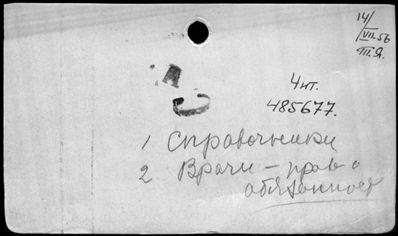 14/
VII.56
Чит.
485677.
1 Справочники
2 Врачи – права
обязанност